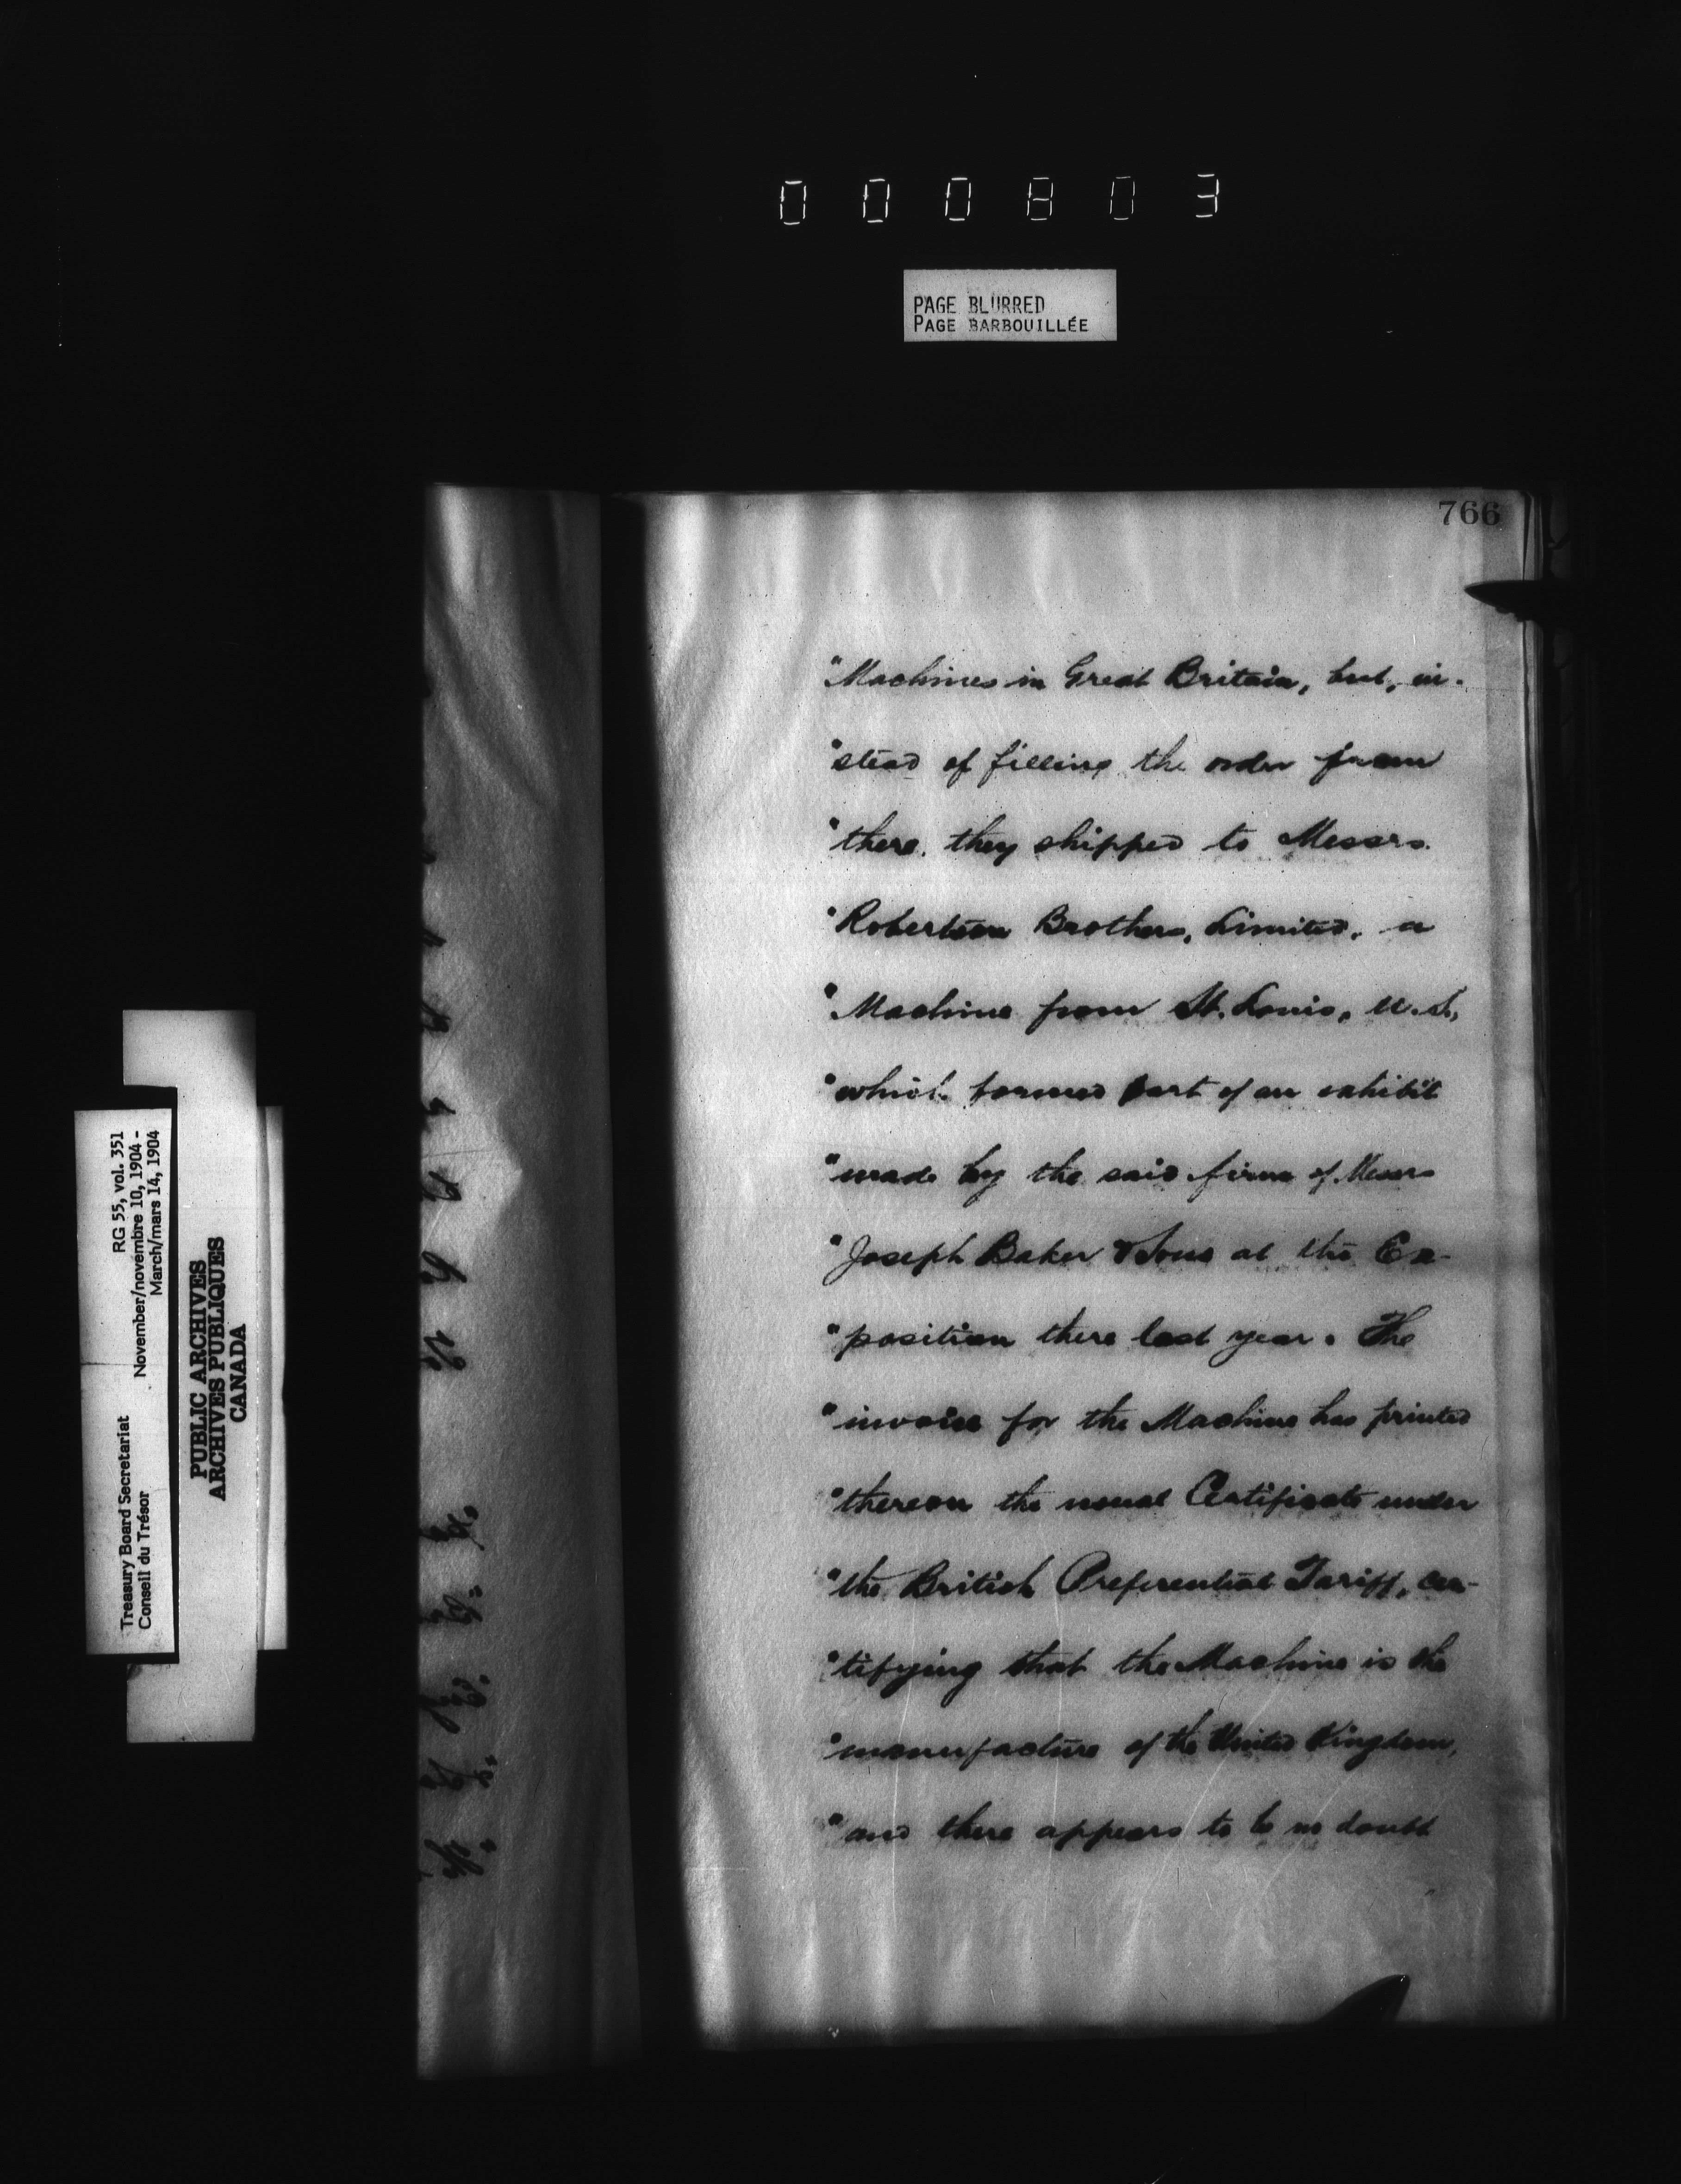 000803
PAGE BLURRED
PAGE BARBOUILLÉE
766
"Machines in Great Britain, but, in-
"stead of filling the order from
"there, they shipped to Messrs.
"Robertson Brothers, Limited, a
"Machine from St. Louis, U.S.,
"which formed part of an exhibit
"made by the said firm of Messrs
"Joseph Baker & Sons at the Ex-
"position there last year. The
"invoice for the Machine has printed
"thereon the usual Certificate under
"the British Preferential Tariff, cer-
"tifying that the Machine is the
"manufacture of the United Kingdom,
"and there appears to be no doubt
Treasury Board Secretariat RG 55, vol. 351
Conseil du Trésor November/novembre 10, 1904 -
March/mars 14, 1904
PUBLIC ARCHIVES
ARCHIVES PUBLIQUES
CANADA